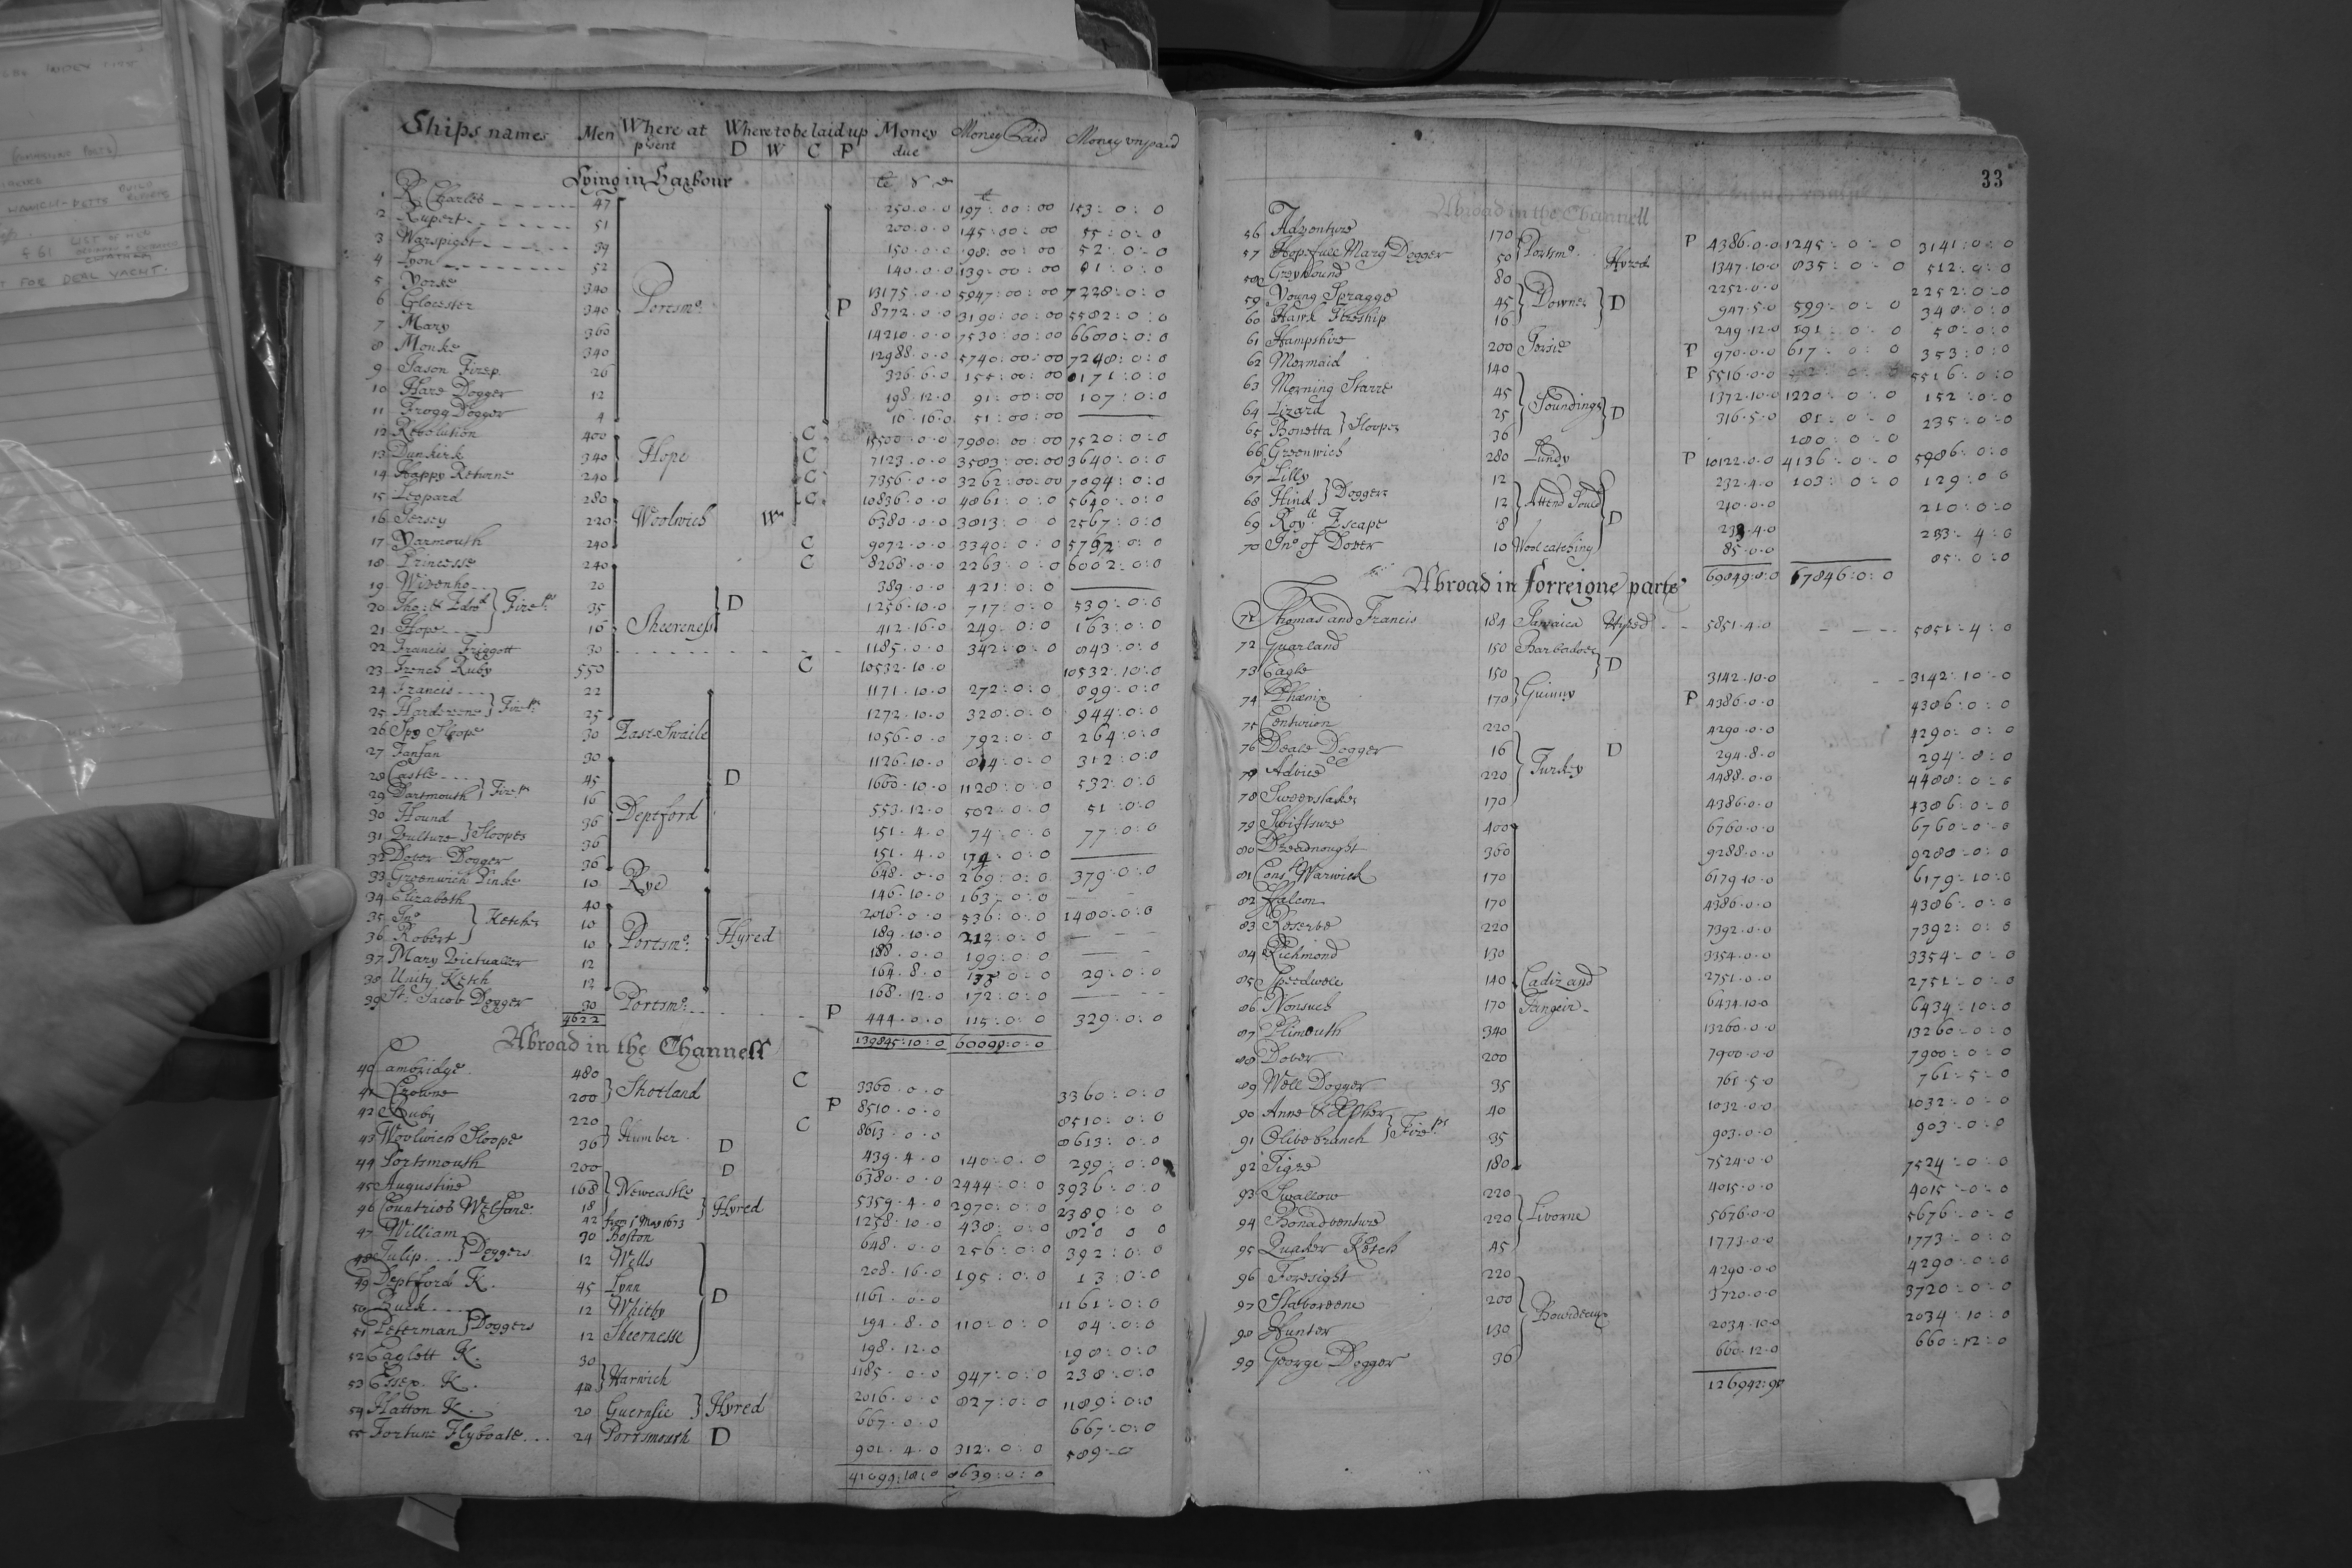 Ships names Men Where at pṛsent Where to be laid up D W C P Money due Money Paid Money unpaid
Lying in Harbour
1 R. Charles 47 250.0.0 197:00:00 153:0:0
2 Rupert 51 200.0.0 145:00:00 55:0:0
3 Warspight 39 150.0.0 98:00:00 52:0:0
4 Lyon 52 140.0.0 139:00:00 81:0:0
5 Yorke 340 13175.0.0 5947:00:00 7228:0:0
6 Glocester 340 Portsmo. P 8772.0.0 3190:00:00 5582:0:0
7 Mary 360 14210.0.0 7530:00:00 6680:0:0
8 Monke 340 12988.0.0 5740:00:00 7248:0:0
9 Jason Firep. 26 326.6.0 155:00:00 0171:0:0
10 Hare Dogger 12 198.12.0 91:00:00 107:0:0
11 Frogg Dogger 4 16.16.0 51:00:00
12 Resolution 400 C 15500.0.0 7980:00:00 7520:0:0
13 Dunkirk 340 Hope C 7123.0.0 3583:00:00 3640:0:0
14 Happy Returne 240 C 7356.0.0 3262:00:00 7094:0:0
15 Leopard 280 C 10836.0.0 4861:0:0 5640:0:0
16 Jersey 220 Woolwich W 6380.0.0 3813:0:0 2567:0:0
17 Yarmouth 240 C 9072.0.0 3340:0:0 5792:0:0
18 Princesse 240 C 8268.0.0 2263:0:0 6002:0:0
19 Wivenho 20 389.0.0 421:0:0
20 Tho: & Edwd. Firesps 35 D 1256.10.0 717:0:0 539:0:0
21 Hope 16 Sheerness 412.16.0 249:0:0 163:0:0
22 Francis Friggott 30 1185.0.0 342:0:0 843:0:0
23 French Ruby 550 C 10532.10.0 10532:10:0
24 Francis 22 1171.10.0 272:0:0 899:0:0
25 Harderene Firesps 25 1272.10.0 328:0:0 944:0:0
26 Spy Sloope 30 East Swaile 1056.0.0 792:0:0 264:0:0
27 Fanfan 30 1126.10.0 814:0:0 312:0:0
28 Castle 45 D 1660.10.0 1128:0:0 532:0:0
29 Dartmouth Firesps 16 553.12.0 502:0:0 51:0:0
30 Hound 36 Deptford 151.4.0 74:0:0 77:0:0
31 Vulture Sloopes 36 151.4.0 174:0:0
32 Dover Dogger 36 648.0.0 269:0:0 379:0:0
33 Greenwich Pinke 10 Rye 146.10.0 163:0:0
34 Elizabeth 40 2016.0.0 536:0:0 1480:0:0
35 Jno. Ketches 10 189.10.0 212:0:0
36 Robert 10 Portsmo. Hyred 188.0.0 199:0:0
37 Mary Victualler 12 164.8.0 135:0:0 29:0:0
38 Unity Ketch 12 168.12.0 172:0:0
39 St. Jacob Dogger 30 Portsmo. P 444.0.0 115:0:0 329:0:0
4622 139845:10:0 60098:0:0
Abroad in the Channell
40 Cambridge 480 C 3360.0.0 3360:0:0
41 Crowne 200 Shotland P 8510.0.0 8510:0:0
42 Ruby 220 C 8613.0.0 8613:0:0
43 Woolwich Sloope 36 Humber D 439.4.0 140:0:0 299:0:0
44 Portsmouth 200 D 6380.0.0 2444:0:0 3936:0:0
45 Augustine 168 Newcastle 5359.4.0 2970:0:0 2389:0:0
46 Countries Welfare 18 42 from 1st May 1673 Hyred 1258.10.0 438:0:0 820:0:0
47 William 30 Boston 648.0.0 256:0:0 392:0:0
48 Tulip Doggers 12 Wells 208.16.0 195:0:0 13:0:0
49 Deptford K. 45 Lynn D 1161.0.0 1161:0:0
50 Buck 12 Whitby 194.8.0 110:0:0 84:0:0
51 Peterman Doggers 12 Sheernesse 198.12.0 198:0:0
52 Eaglett K. 30 1185.0.0 947:0:0 238:0:0
53 Essex K. 40 Harwich 2016.0.0 827:0:0 1189:0:0
54 Hatton K. 20 Guernsie Hyred 667.0.0 667:0:0
55 Fortune Flyboate 24 Portsmouth D 901.4.0 312:0:0 589:0
41099:18:0 8639:0:0
33
Abroad in the Channell
56 Adventure 170 Portsmo. P 4386.0.0 1245:0:0 3141:0:0
57 Hopefull Mary Dogger 50 Hyred 1347.10.0 835:0:0 512:0:0
58 Greyhound 80 2252.0.0 2252:0:0
59 Young Spragge 45 Downes D 947.5.0 599:0:0 348:0:0
60 Hawk Fireship 16 249.12.0 191:0:0 58:0:0
61 Hampshire 200 Jersie P 970.0.0 617:0:0 353:0:0
62 Mermaid 140 P 5516.0.0 5516:0:0
63 Morning Starre 45 1372.10.0 1220:0:0 152:0:0
64 Lizard 25 Soundings D 316.5.0 81:0:0 235:0:0
65 Bonetta Sloopes 36 180:0:0
66 Greenwich 280 Lundy P 10122.0.0 4136:0:0 5986:0:0
67 Lilly 12 232.4.0 103:0:0 129:0:0
68 Hind Doggers 12 Attend Sould 210.0.0 210:0:0
69 Royll. Escape 8 D 233.4.0 233:4:0
70 Jno. of Dover 10 Wool catching 85.0.0 85:0:0
69849:8:0 67846:0:0
Abroad in forreigne parts
71 Thomas and Francis 184 Jamaica Hyred 5851.4.0 5851:4:0
72 Guarland 150 Barbadoes D
73 Eagle 150 3142.10.0 3142:10:0
74 Phœnix 170 Guinny P 4386.0.0 4386:0:0
75 Centurion 220 4290.0.0 4290:0:0
76 Deale Dogger 16 D 294.8.0 294:8:0
77 Advice 220 Turkey 4488.0.0 4488:0:0
78 Sweepstakes 170 4386.0.0 4386:0:0
79 Swiftsure 400 6760.0.0 6760:0:0
80 Dreadnought 360 9288.0.0 9288:0:0
81 Const. Warwick 170 6179.10.0 6179:10:0
82 Falcon 170 4386.0.0 4386:0:0
83 Reserve 220 7392.0.0 7392:0:0
84 Richmond 130 3354.0.0 3354:0:0
85 Speedwell 140 Cadiz and 2751.0.0 2751:0:0
86 Nonsuch 170 Tangeir 6434.10.0 6434:10:0
87 Plimouth 340 13260.0.0 13260:0:0
88 Dover 200 7900.0.0 7900:0:0
89 Well Dogger 35 761.5.0 761:5:0
90 Anne & Esther 40 1032.0.0 1032:0:0
91 Olive branch Firesps 35 903.0.0 903:0:0
92 Tigre 180 7524.0.0 7524:0:0
93 Swallow 220 4015.0.0 4015:0:0
94 Bonadventure 220 Livorne 5676.0.0 5676:0:0
95 Quaker Ketch 45 1773.0.0 1773:0:0
96 Foresight 220 4290.0.0 4290:0:0
97 Stavoreene 200 3720.0.0 3720:0:0
98 Hunter 130 Bourdeaux 2034.10.0 2034:10:0
99 George Dogger 36 660.12.0 660:12:0
126942:9